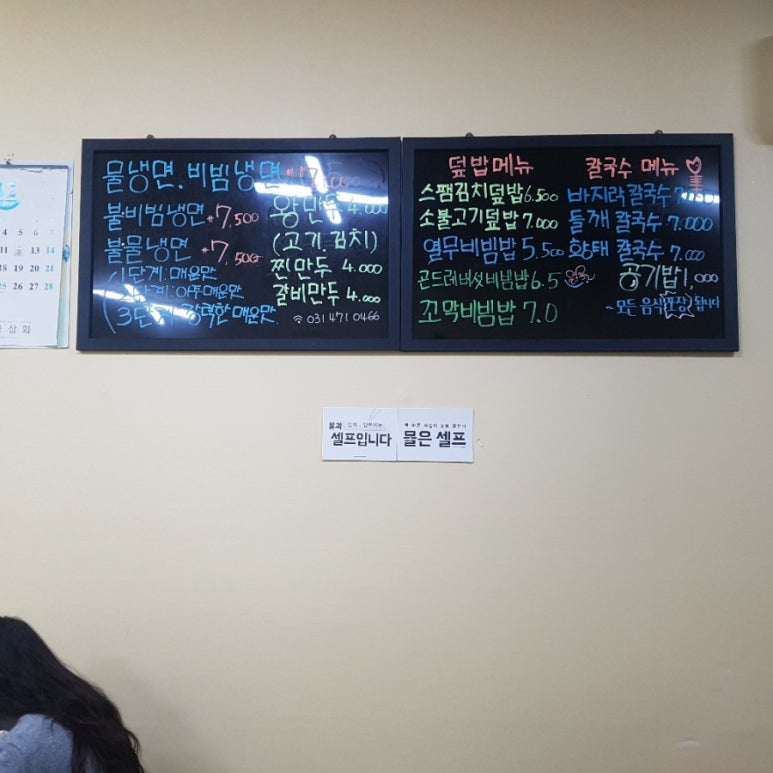 물냉면.비빔냉면
불비빔냉면 7,500
불물냉면 7,500
(1단계:매운맛
단계:아주매운맛
(3단계: 강력한매운맛
왕만두 4.000
(고기.김치)
찐만두 4.000
갈비만두 4.000
031 471 0466
덮밥메뉴
스팸김치덮밥 6.500
소불고기덮밥 7.000
열무비빔밥 5.500
곤드레버섯비빔밥 6.5
꼬막비빔밥 7.0
칼국수 메뉴
바지락칼국수
들깨 칼국수 7.000
황태 칼국수 7.000
공기밥 1,000
~모든 음식포장 됩니다
4 5 6 7
11 13 14
18 19 20 21
25 26 27 28
상회
물과
셀프입니다
물은 셀프